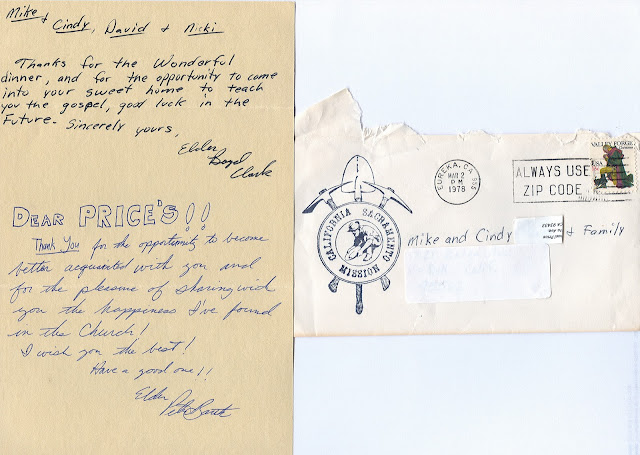 Mike &
Cindy, David & Nicki
Thanks for the Wonderful
dinner, and for the opportunity to come
into your sweet home to teach
you the gospel, good luck in the
Future. Sincerely yours,
Elder
Boyd
Clark
DEAR PRICE'S!!
Thank You for the opportunity to become
better acquanted with you and
for the pleasure of sharing with
you the happiness I've found
in the Church!
I wish you the best!
Have a good one!!
Elder
CALIFORNIA SACRAMENTO
MISSION
EUREKA, CA
MAR 2
PM
1978
ALWAYS USE
ZIP CODE
VALLEY FORGE
USA
Mike and Cindy & Family